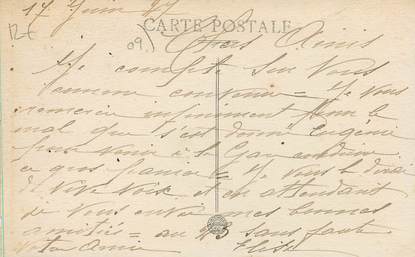 17 Juin
12€
CARTE POSTALE
09)
Chers Amis
Je compte sur Vous
comme convenu = Je Vous
remercie infiniment pour le
mal que s'est donné Eugénie
pour venir à la Gare conduire
ce gros panier = Je vous le dirai
de vive Voix et en attendant
de Vous envoie mes bonnes
amitiés = au 23 sans faute
Votre Amie